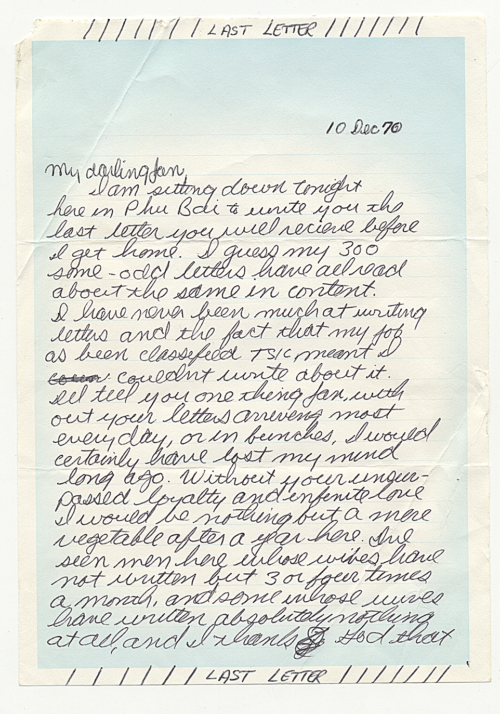 / / / / / / / LAST LETTER / / / / / / /
10 Dec 70
My darling Jan,
I am sitting down tonight
here in Phu Bai to write you the
last letter you will recieve before
I get home. I guess my 300
some-odd letters have all read
about the same in content.
I have never been much at writing
letters and the fact that my job
as been classified TSIC meant I
couldn't write about it.
I'll tell you one thing Jan, with
out your letters arriveng most
everyday, or in bunches, I would
certainly have lost my mind
long ago. Without your unsur-
passed loyalty and infinite love
I would be nothing but a mere
vegetable after a year here. I've
seen men here whose wives have
not written but 3 or four times
a month, and some whose wives
have written absolutely nothing
at all, and I thank God that
/ / / / / / / LAST LETTER / / / / / / /